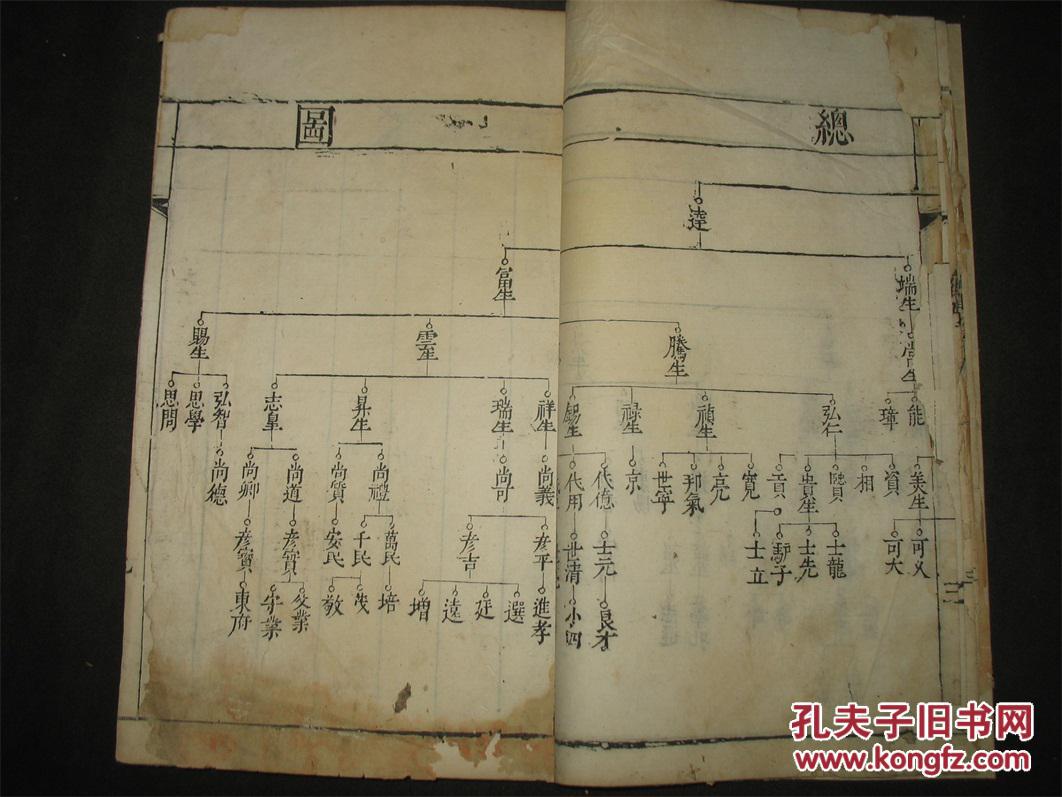 總
圖
達
瑞生
富生
騰生
雲生
賜生
能
璋
弘仁
禎生
祿生
錫生
祥生
瑞生
昇生
志皇
弘智
思學
思問
美生
資
相
賢
貴生
貢
寬
亮
邦氣
世寧
京
代億
代用
尚義
尚可
尚禮
尚質
尚道
尚卿
尚德
可义
可大
士龍
士先
驴子
士立
士元
世清
彦平
彦吉
萬民
千民
安民
彦實
彦寳
良才
小四
進孝
選
廷
遠
增
培
茂
敎
父業
守業
東府
三
孔夫子旧书网
www.kongfz.com